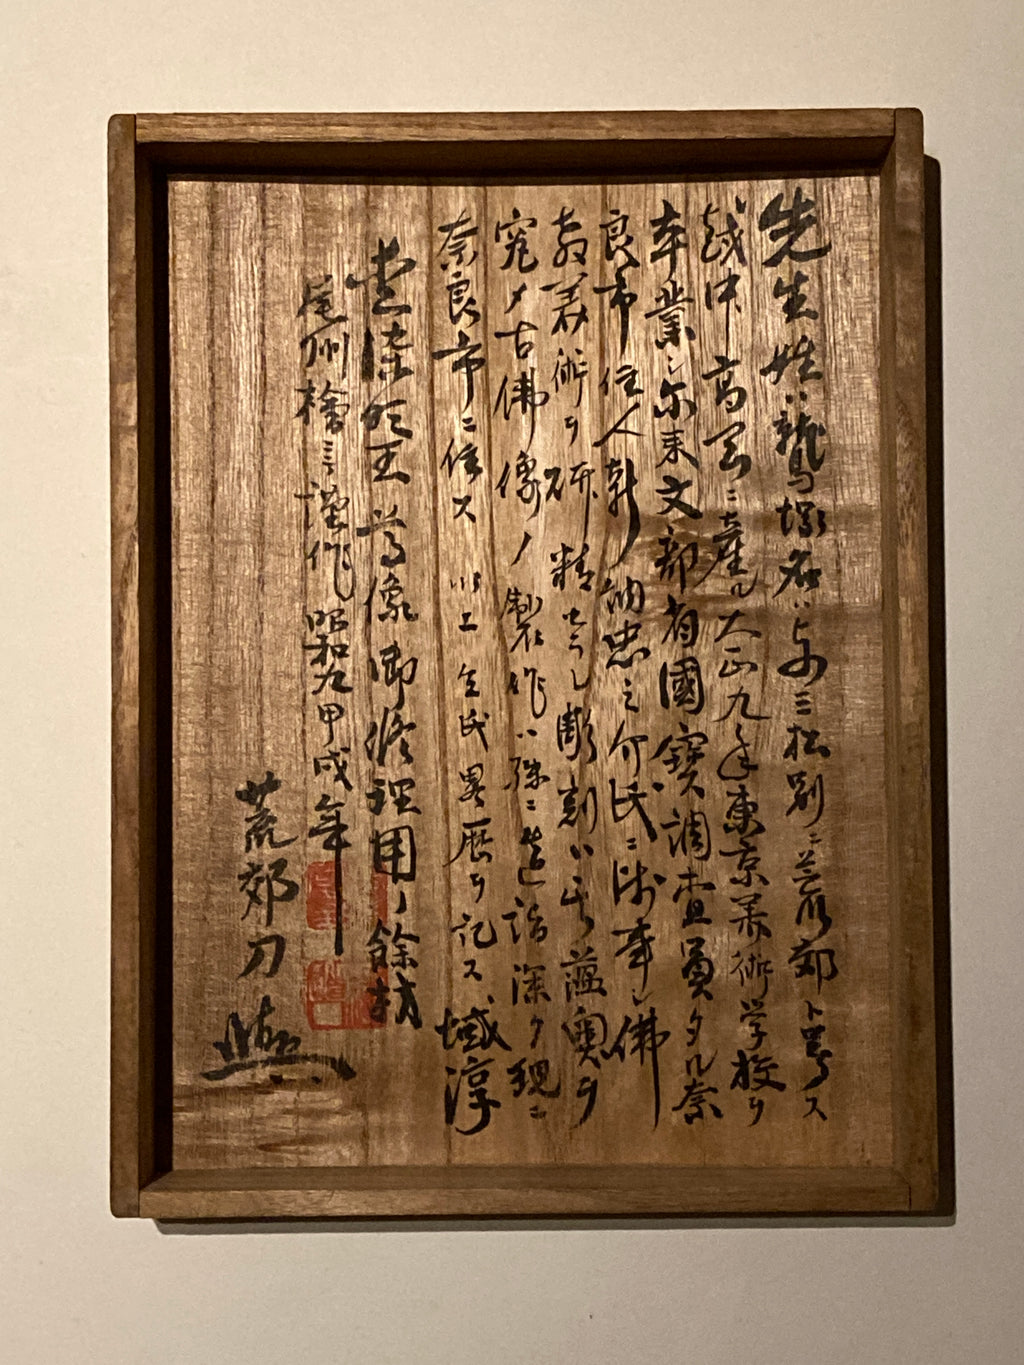 先生姓ハ鷲塚名ハ与三松別ニ荒郊ト号ス
越中高岡ニ産ル大正九年東京美術学校ヲ
卒業シ尓来文部省國寶調査員タル奈
良市住人新納忠之介氏ニ師事シ佛
教美術ヲ研精シ彫刻ハ其蘊奥ヲ
究メ古佛像ノ製作ハ殊ニ造詣深ク現ニ
奈良市ニ住ス 以上 仝氏畧歴ヲ記ス 域淳
愛染明王尊像御修理用ノ餘材
尾州檜ニ謹作 昭和九甲戌年
荒郊刀